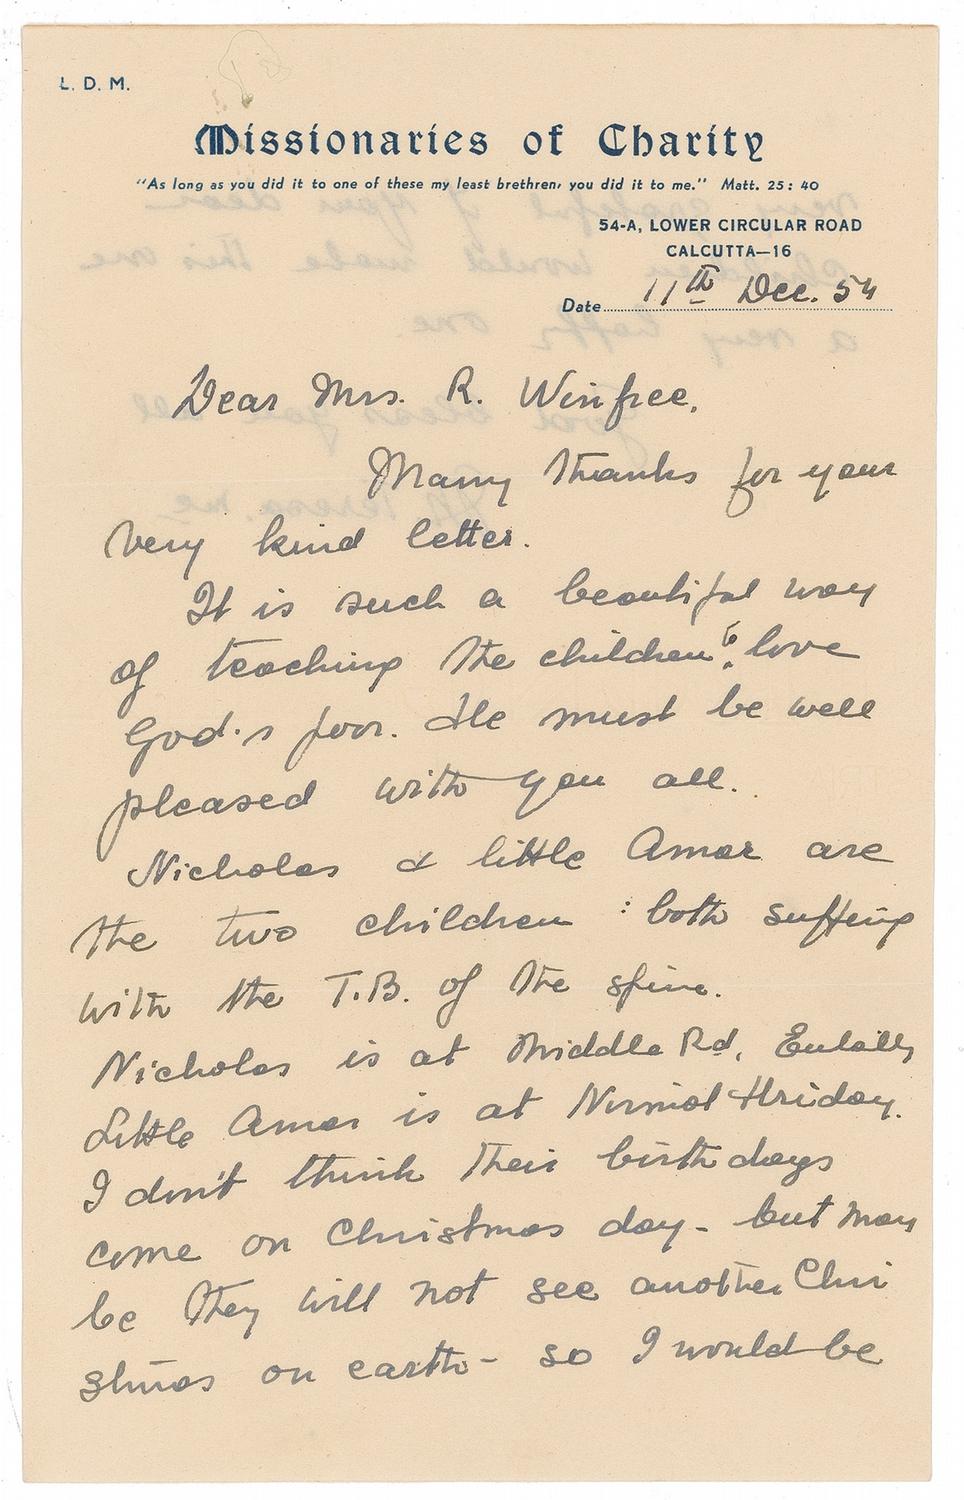 L. D. M.
Missionaries of Charity
"As long as you did it to one of these my least brethren, you did it to me." Matt. 25: 40
54-A, LOWER CIRCULAR ROAD
CALCUTTA—16
Date 11th Dec. 54
Dear Mrs. R. Winfree,
Many thanks for your
very kind letter.
It is such a beautiful way
of teaching the children to love
God's poor. He must be well
pleased with you all.
Nicholas & little Amar are
the two children : both suffering
with the T.B. of the spine.
Nicholas is at Middle Rd, Entally
Little Amar is at Nirmal Hriday.
I don't think their birthdays
come on Christmas day - but may
be they will not see another Chri
stmas on earth - so I would be
very grateful if you dear
children would make this one
a very happy one.
God bless you all
M. Teresa. mc